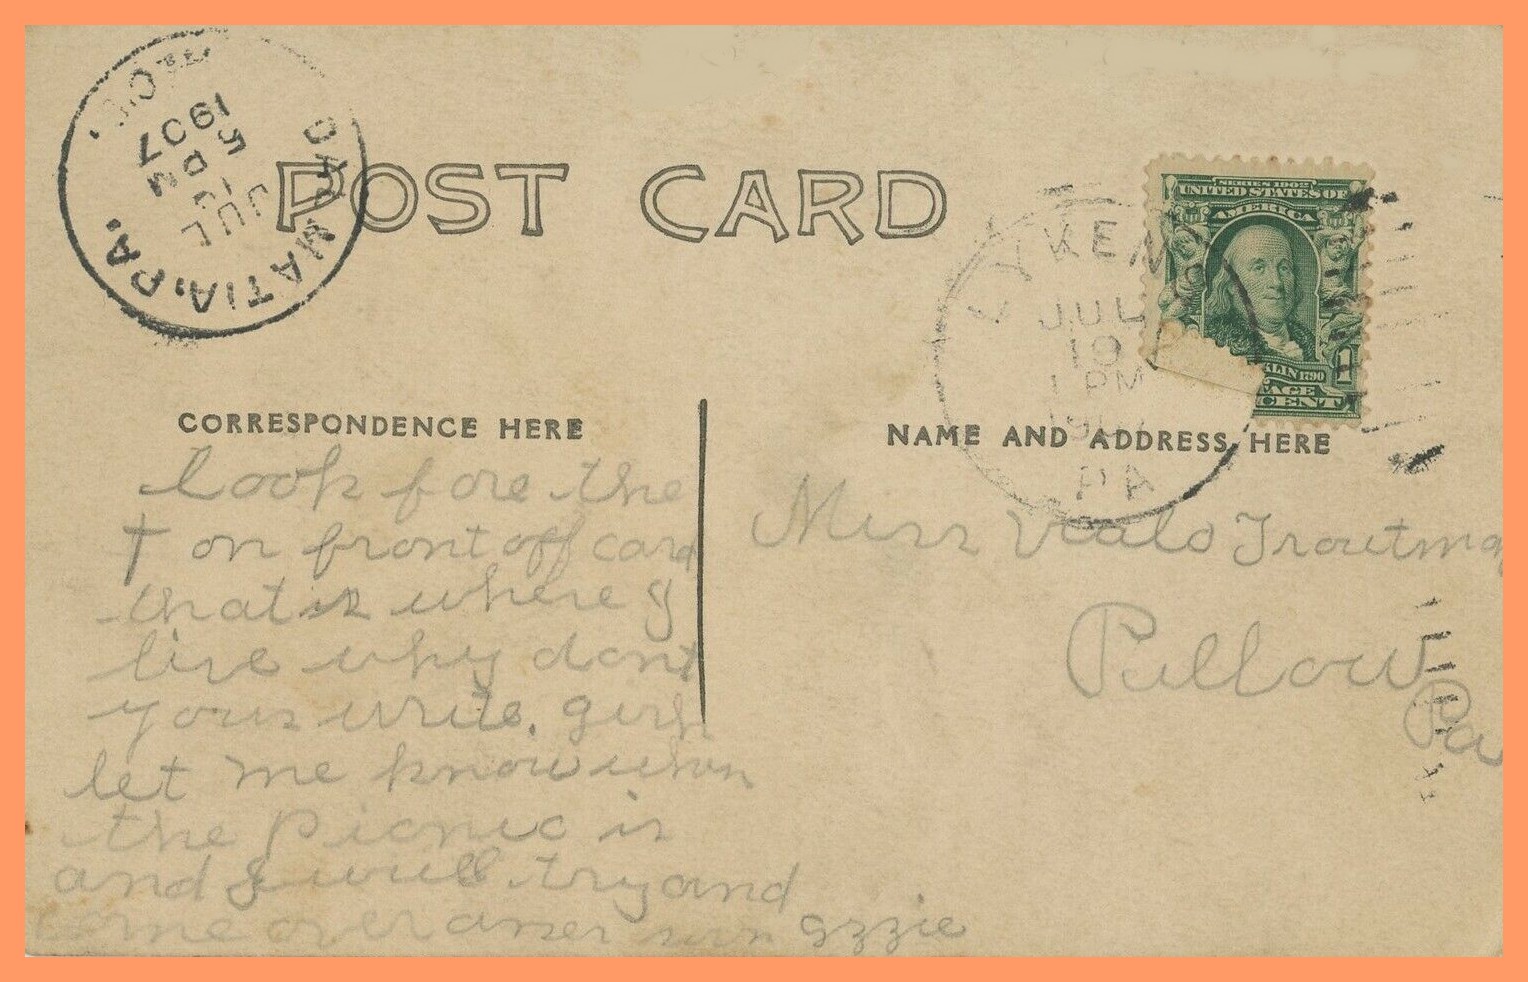 DALMATIA, PA.
JUL
10
5 PM
1907
REC'D.
POST CARD
SERIES 1902
UNITED STATES OF
AMERICA
KLIN 1790
AGE
1
CENT
LYKENS
JUL
10
1 PM
1907
PA
CORRESPONDENCE HERE
NAME AND ADDRESS HERE
look fore the
† on front off card
that is where I
live why dont
yous write. girls
let me know when
the Picnic is
and I will try and
come over anser son Izzie
Miss Troutman
Pillow
Pa